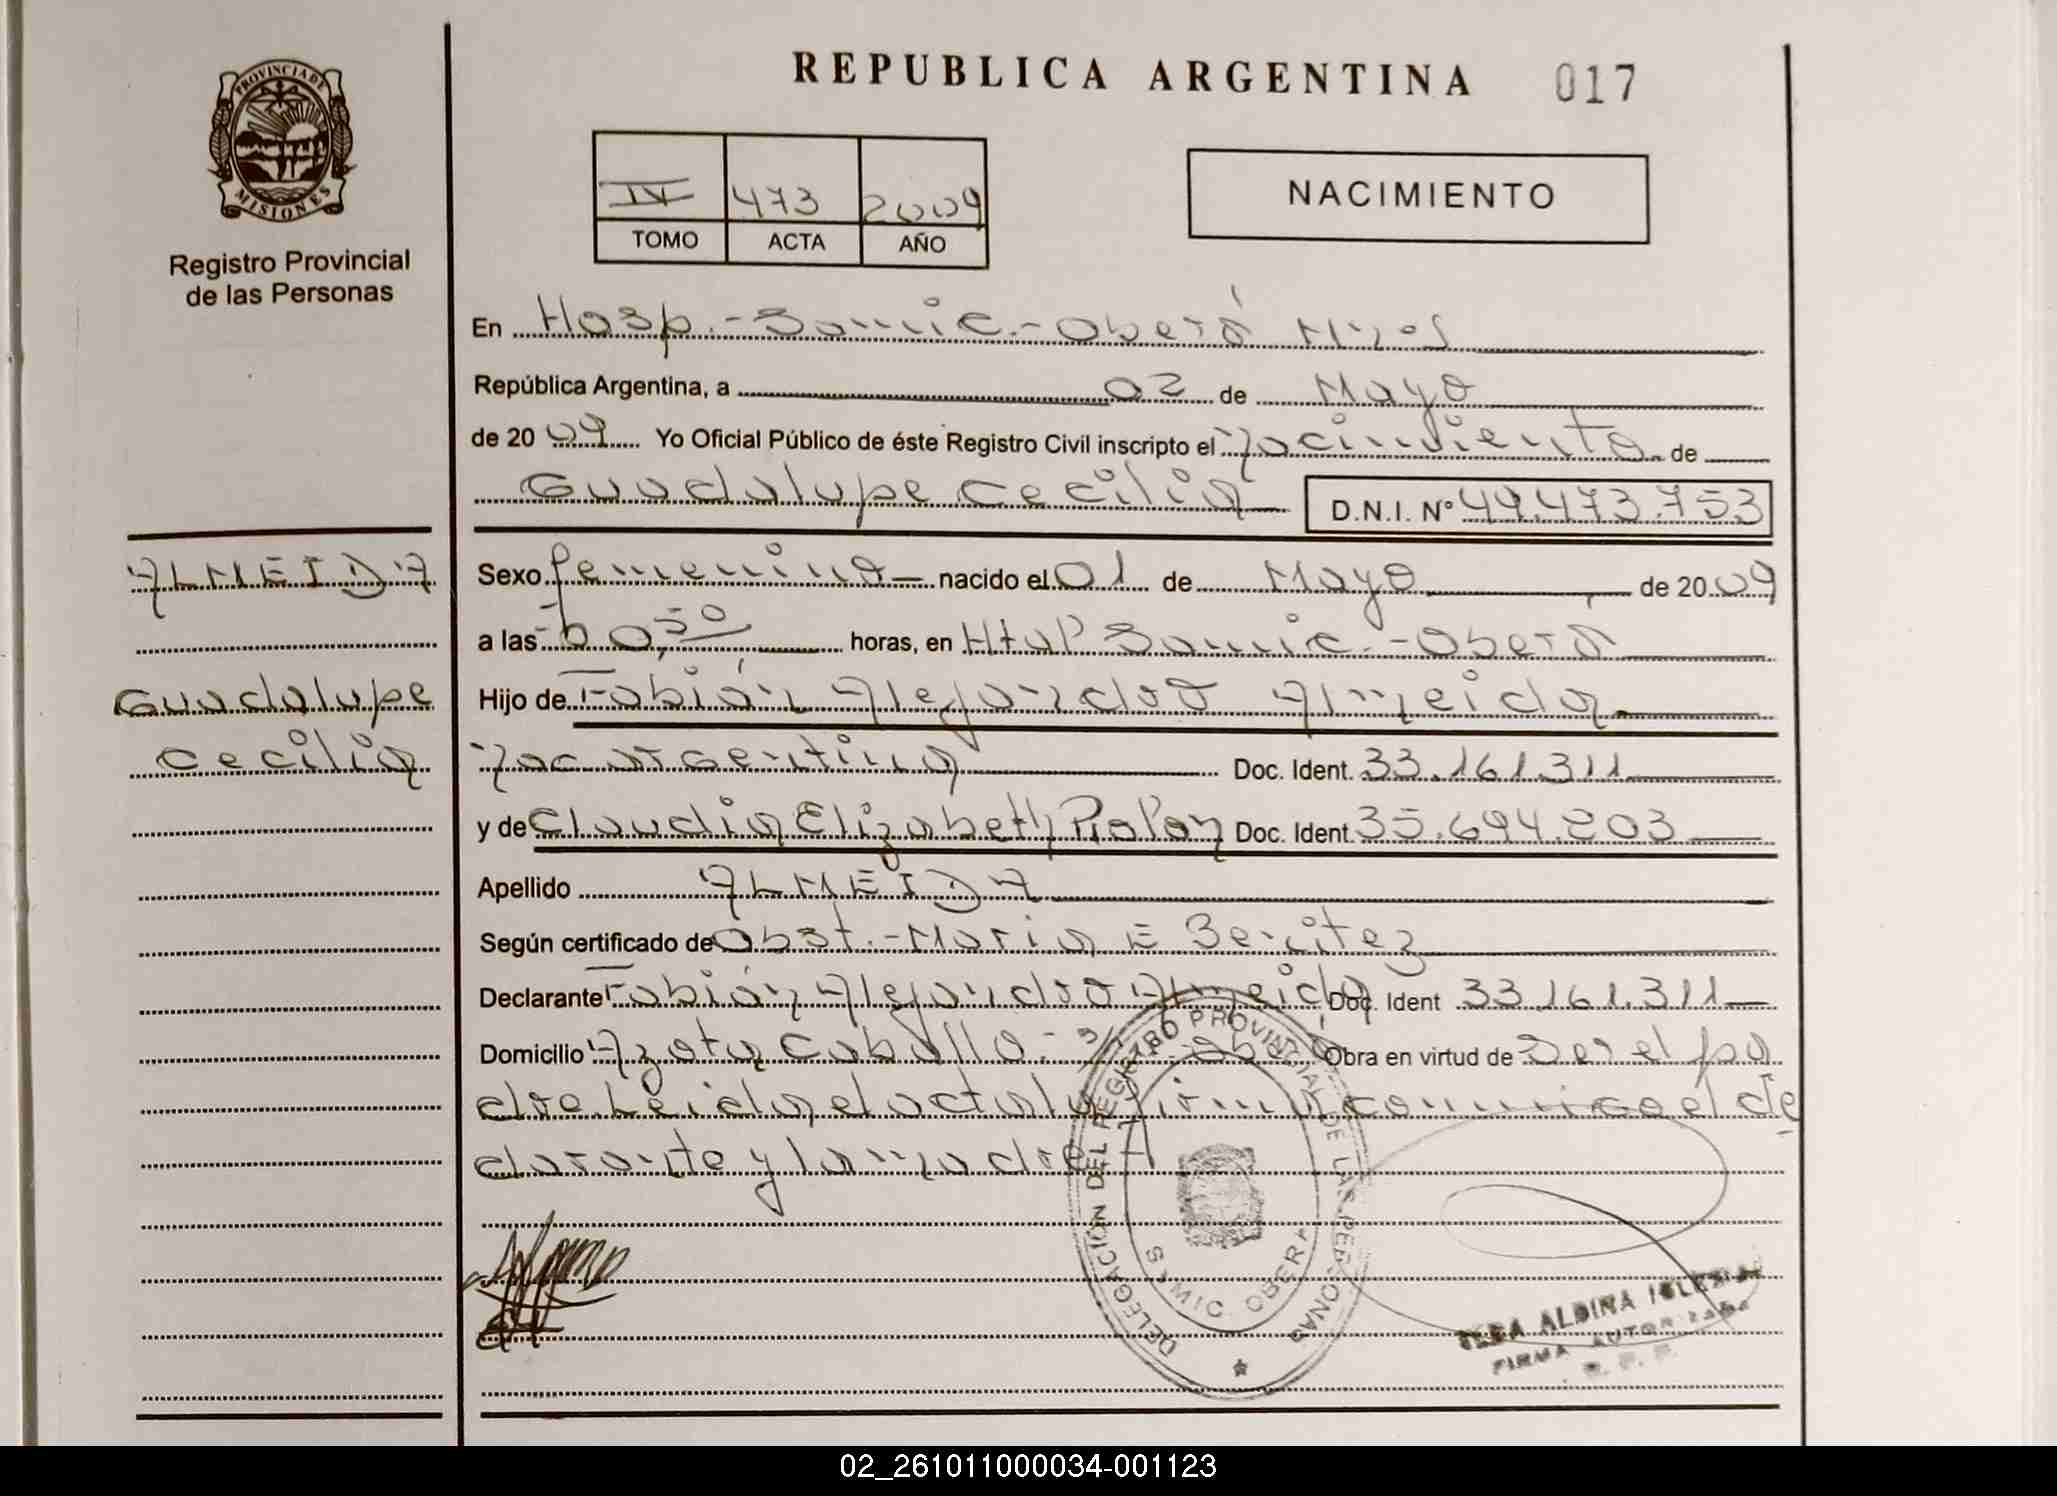 REPUBLICA ARGENTINA 017
PROVINCIA DE MISIONES
Registro Provincial
de las Personas
IV 473 2009
TOMO ACTA AÑO
NACIMIENTO
En Hosp.-Samic.-Oberá Mnes
República Argentina, a 02 de Mayo
de 2009 Yo Oficial Público de éste Registro Civil inscripto el nacimiento de
Guadalupe Cecilia D.N.I. Nº 49.473.753
ALMEIDA
Guadalupe
Cecilia
Sexo femenino nacido el 01 de Mayo de 2009
a las horas, en Htal Samic.-Oberá
Hijo de Fabián Alejandro Almeida
nac argentina Doc. Ident. 33.161.311
y de Claudia Elizabeth Doc. Ident. 35.694.203
Apellido ALMEIDA
Según certificado de Obst.-Maria E Benitez
Declarante Fabián Alejandro Almeida Doc. Ident 33.161.311
Domicilio Azota Caballo.- Oberá Obra en virtud de Ser el pa
dre Leida el acta la firma conmigo el de
clarante y la madre
DELEGACIÓN DEL REGISTRO PROVINCIAL DE LAS PERSONAS
SAMIC OBERA
ALDINA IGLESIAS
FIRMA AUTORIZADA
02_261011000034-001123